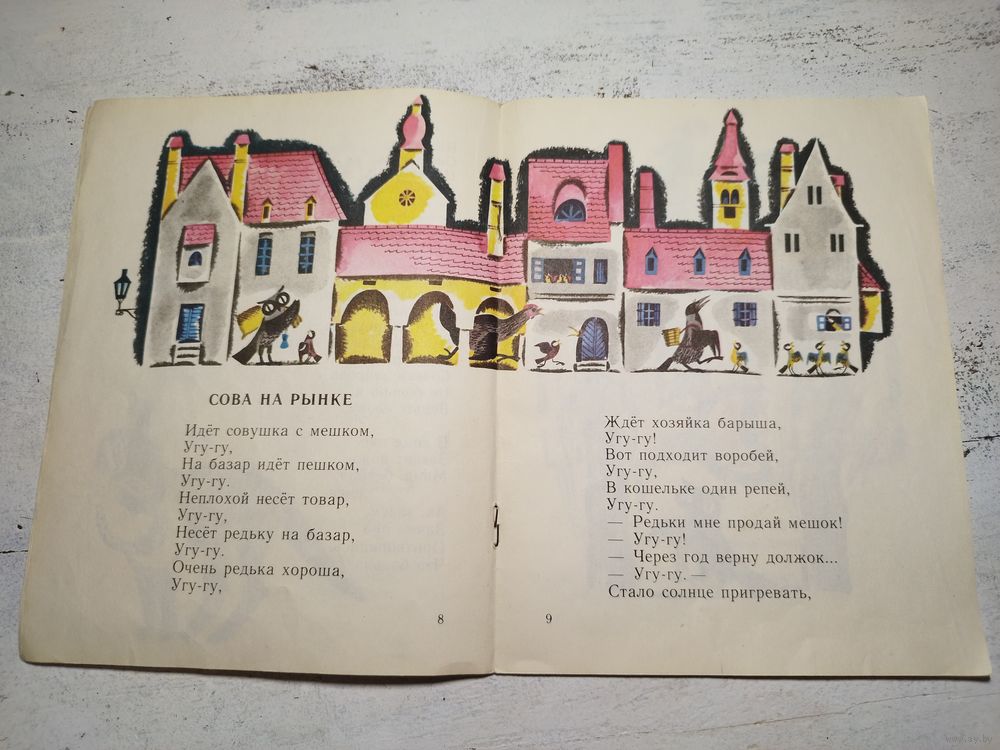 СОВА НА РЫНКЕ
Идёт совушка с мешком,
Угу-гу,
На базар идёт пешком,
Угу-гу.
Неплохой несёт товар,
Угу-гу,
Несёт редьку на базар,
Угу-гу.
Очень редька хороша,
Угу-гу,
8
Ждёт хозяйка барыша,
Угу-гу!
Вот подходит воробей,
Угу-гу,
В кошельке один репей,
Угу-гу.
— Редьки мне продай мешок!
— Угу-гу!
— Через год верну должок...
— Угу-гу. —
Стало солнце пригревать,
9
www.ay.by